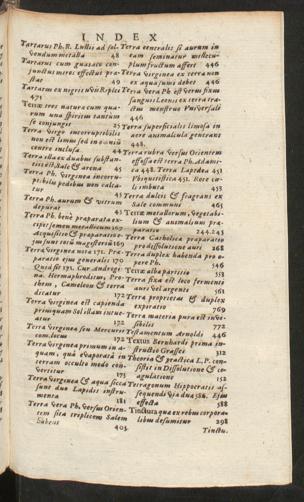 INDEX
Tartarus Ph. R. Lullii ad sol-
vendum metalla 48
Tartarus cum guaiaco con-
junctus miros effectus præ-
stat 49
Tartarum ex nigris vvin Riplei
471
Terræ tres natura cum qua-
rum una spiritum tantum
se conjungit 25
Terra virgo incorruptibilis
non est limus sed in omni
centro inclusa 44
Terra illa ex duabus substan-
tiis est: Sale & arena 45
Terra Ph. Virginea incorru-
ptibilis pedibus non calca-
tur 45
Terra Ph. aurum & vitrum
depurat 45
Terra Ph. benè præparata ex-
cipit semen meralicum 167
Acquisitio & præparatio e-
jus sunt totũ magisteriũ 169
Terra Virginea nota 171. Præ-
paratio ejus generalis 170
Quid sit 171. Cur Androgi-
na, Hermaphroditus, Pro-
theus, Cameleon & terra
dicatur 172
Terra Virginea est capienda
priusquam Sol illam intue-
atur 172
Terra Virginea seu Mercurii
locus 172
Terra Virginea primum in a-
quam, quæ evaporata in
terram occulto modo con-
vertitur 175
Terra Virginea & aqua sicca
sunt duo Lapidis instru-
menta 181
Terra vera Ph. versus Orien-
tem sita triplicem Salem
habens 405
Terra centralis si aurum in
eam seminatur multi-
plum fructum affert 446
Terra Virginea ex terra non
ex aqua sumi debet 446
Terra Vera Ph. est vermi fixus
sanguis Leonis ex terra tra-
ctus menstruo Universali
446
Terra superficialis limosa in
aere animalcula generans
448
Terra rubra versus Orientem
effossa est terra Ph. Adami-
ca 448. Terra Lapidea 451
Phlogisticea 451. Rore cœ-
li imbuta 453
Terra dulcis & fragrans ex
Sale communi 465
Terræ metallorum, Vegetabi-
lium & animalium præ-
paratio 244.245
Terra Catholica præparatio
pro dissolutione auri 268
Terra duplex habenda pro o-
pere Ph. 546
Terræ alba Parisio 553
Terra fixa est loco fermenti
auri vel argenti 561
Terra proprietas & duplex
expiratio 769
Terra materia pura est invi-
sibilis 772
Testamentum Arnoldi 446
Textus Bernhardi prima in-
structio Grassei 312
Theoria & practica L. P. con-
sistit in Dissolutione & co-
agulatione 152
Tetragonum Hippocratis as-
sequendi via dua 586. Ejus
effecta 588
Tinctura qua ex rebus corpora-
libus desumitur 298
Tinctu.